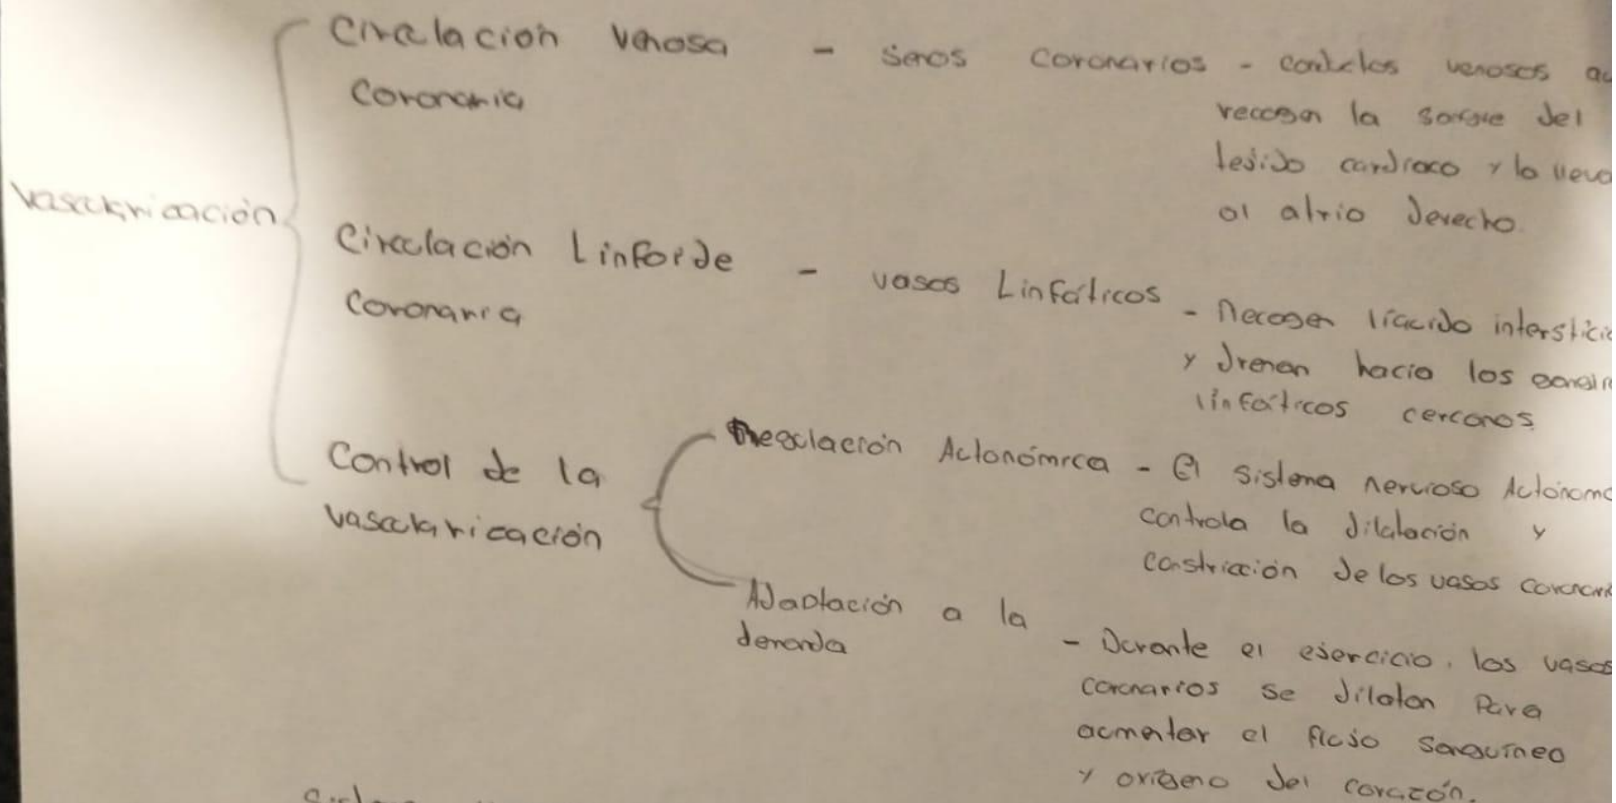 Circulación venosa - senos coronarios - conductos venosos
coronaria
recogen la sangre del
tejido cardiaco y la lleva
al atrio derecho.
Vascularización
Circulación Linfoide - vasos Linfáticos - Recogen líquido intersticial
coronaria
y drenan hacia los ganglios
linfáticos cercanos.
Control de la
vascularización
Regulación Autonómica - El sistema nervioso Autónomo
controla la dilatación y
constricción de los vasos coronarios
Adaptación a la
demanda
- Durante el ejercicio, los vasos
coronarios se dilatan para
aumentar el flujo sanguíneo
y oxígeno del corazón.